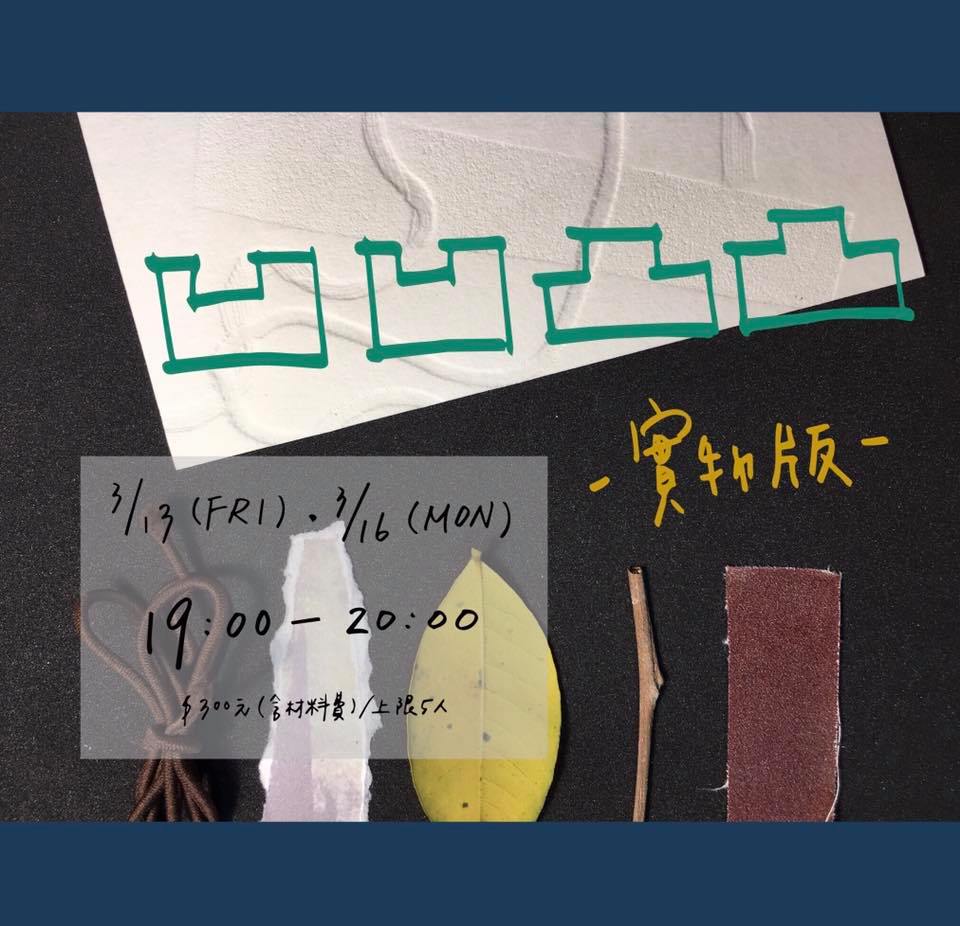 凹凹凸凸
-實物版-
3/13(FRI).3/16(MON)
19:00-20:00
$300元(含材料費)/上限5人